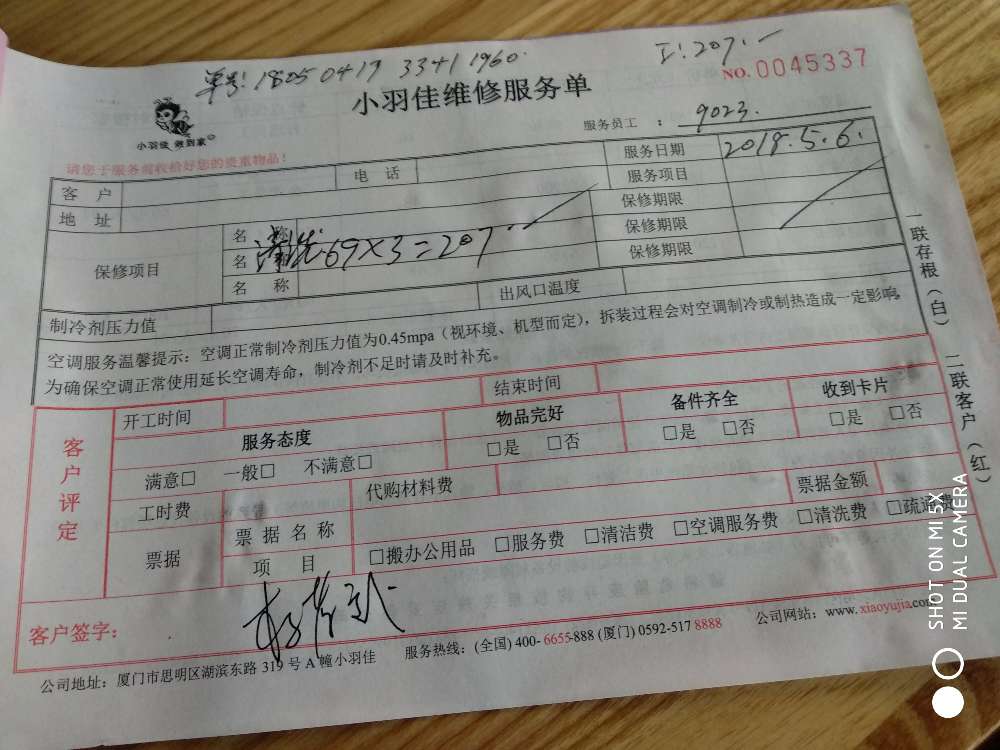 单号: 18050419 33411960. 工:207.—
小羽佳 做到家 小羽佳维修服务单 NO.0045337
服务员工 : 9023.
请您于服务前收拾好您的贵重物品!
客 户 电 话 服务日期 2018.5.6.
地 址 服务项目
保修项目 名 称 保修期限
名 称 清洗69×3=207.— 保修期限
名 称 保修期限
制冷剂压力值 出风口温度
空调服务温馨提示：空调正常制冷剂压力值为0.45mpa（视环境、机型而定），拆装过程会对空调制冷或制热造成一定影响，
为确保空调正常使用延长空调寿命，制冷剂不足时请及时补充。
客户评定
开工时间 结束时间
服务态度 物品完好 备件齐全 收到卡片
满意□ 一般□ 不满意□ □是 □否 □是 □否 □是 □否
工时费 代购材料费
票据 票据名称 票据金额
项 目 □搬办公用品 □服务费 □清洁费 □空调服务费 □清洗费 □疏通费
客户签字：
公司地址：厦门市思明区湖滨东路 319 号 A 幢小羽佳 服务热线：(全国) 400- 6655-888 (厦门) 0592-517 8888 公司网站：www. xiaoyujia.com
一联存根（白） 二联客户（红）
SHOT ON MI 5X
MI DUAL CAMERA